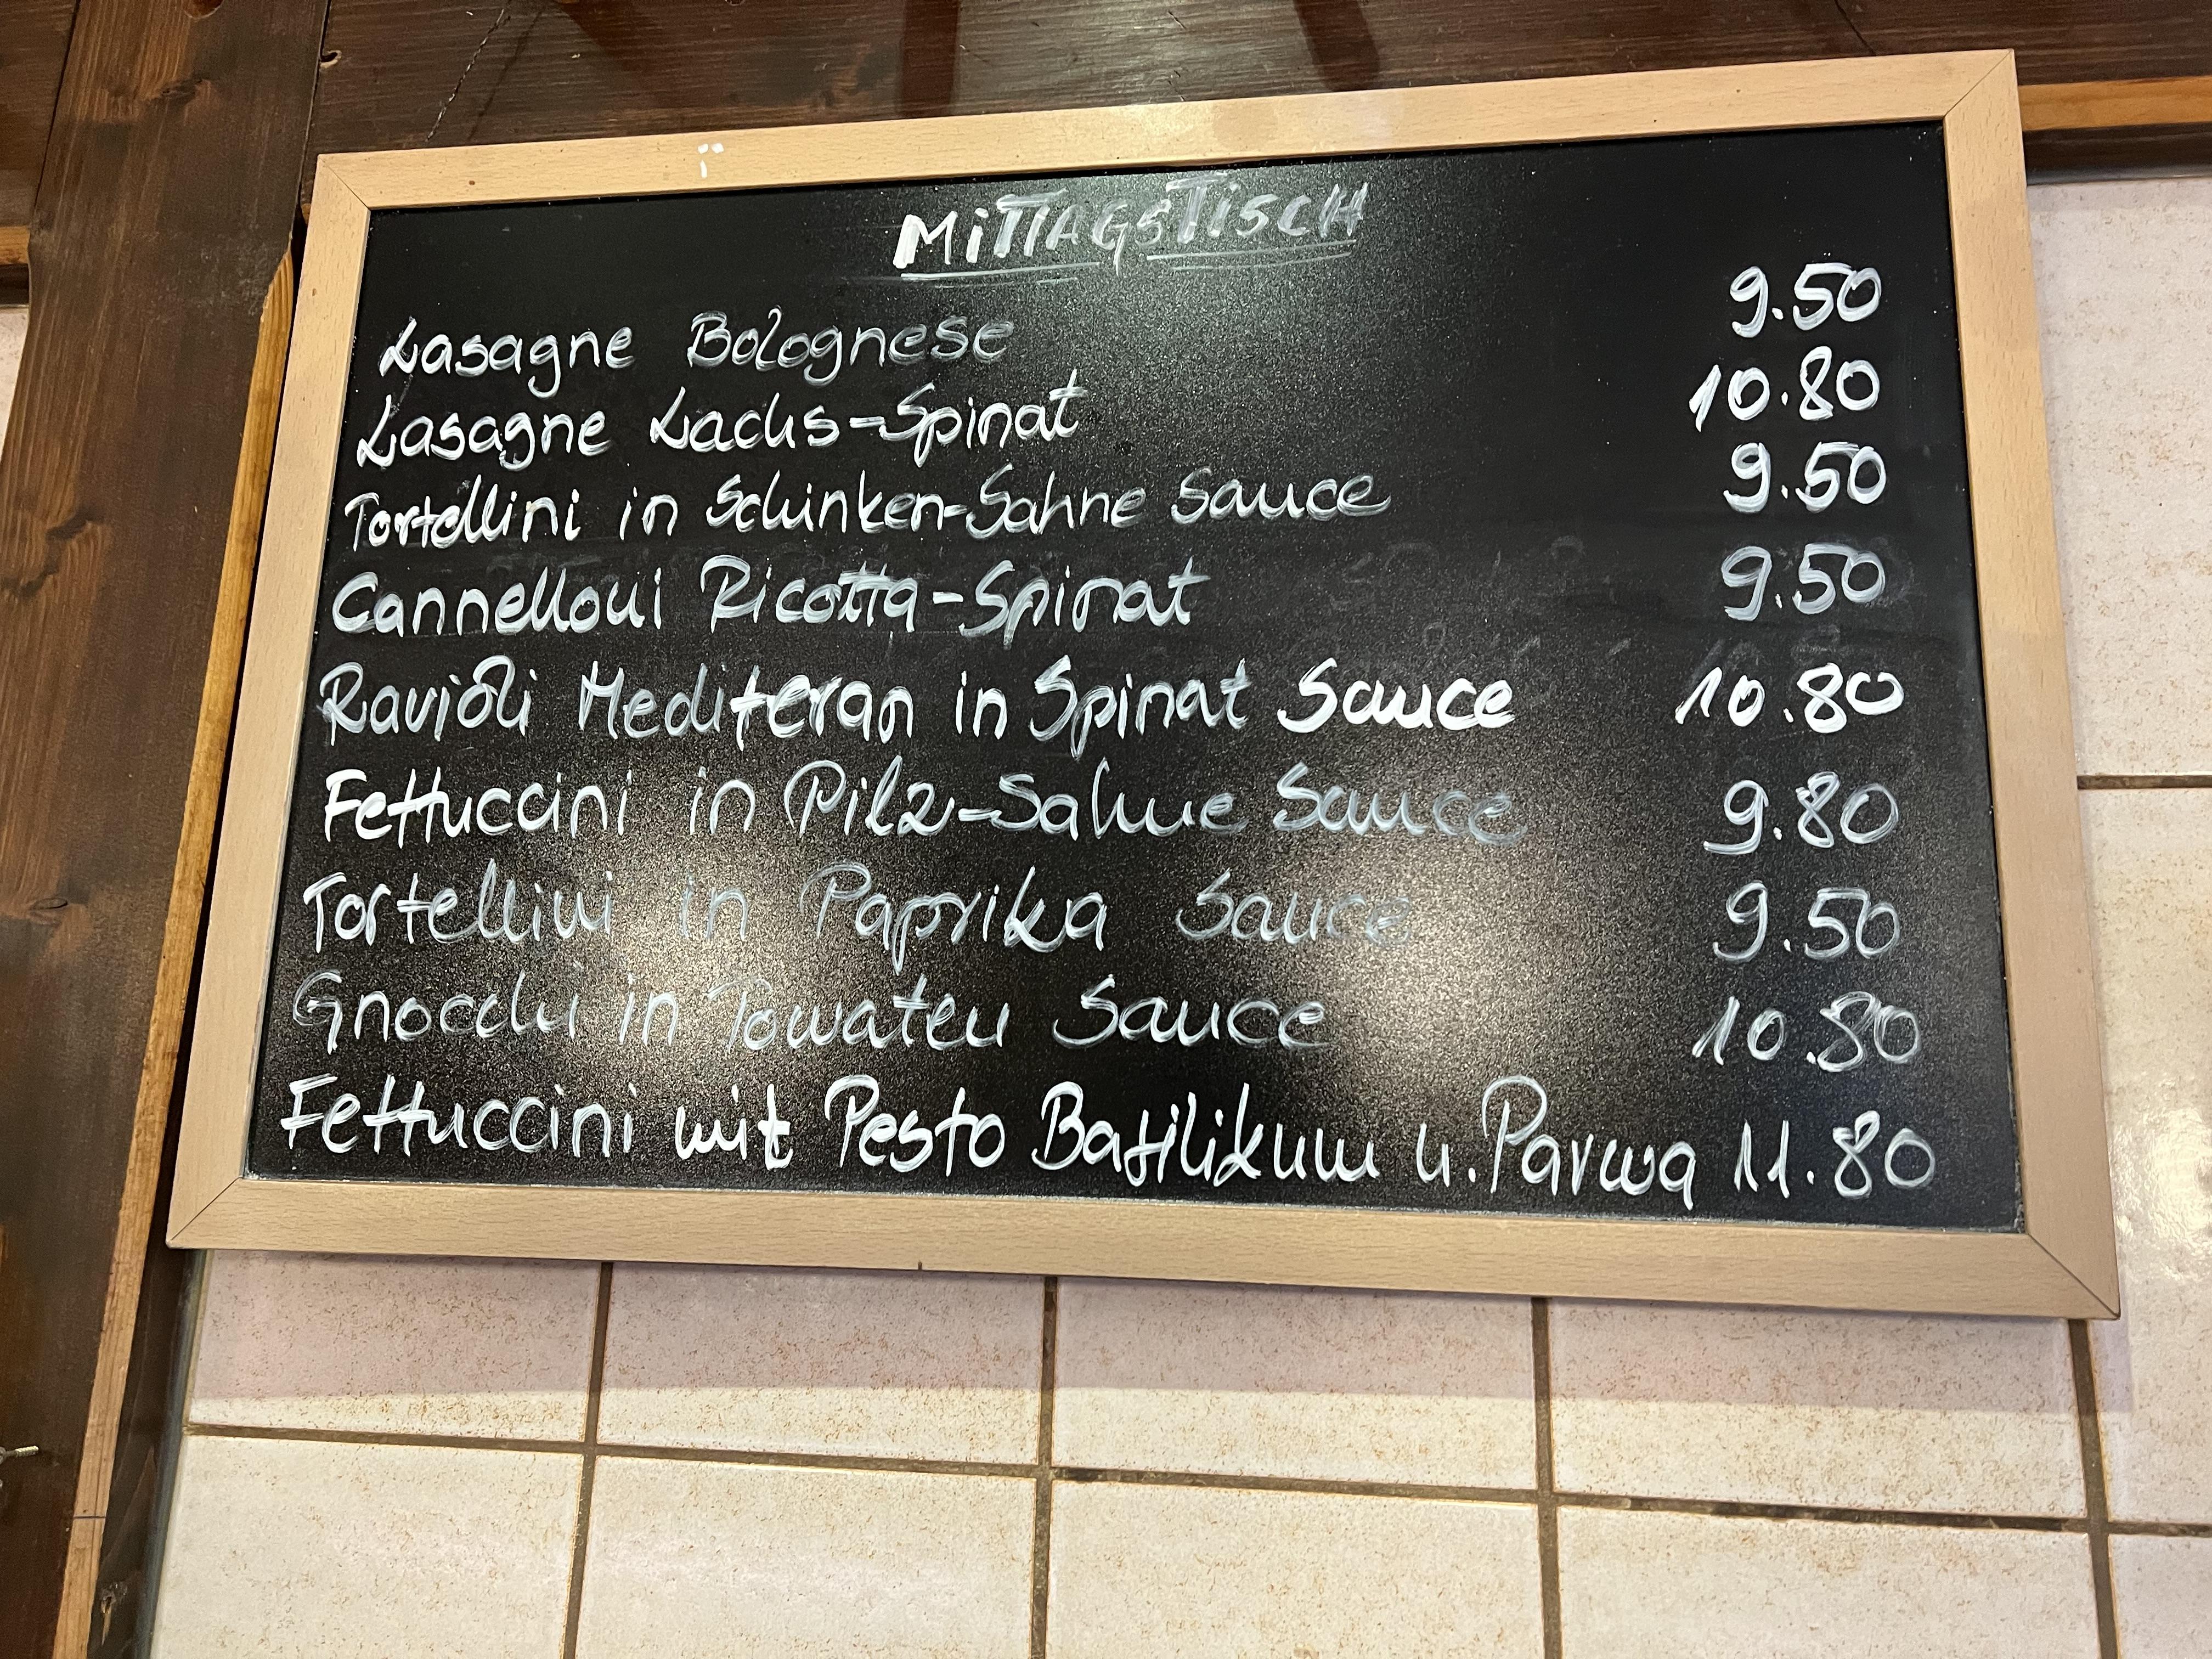 MiTTAGSTiSCH
Lasagne Bolognese 9.50
Lasagne Lachs-Spinat 10.80
Tortellini in Schinken-Sahne Sauce 9.50
Cannelloni Ricotta-Spinat 9.50
Ravioli Mediteran in Spinat Sauce 10.80
Fettuccini in Pilz-Sahne Sauce 9.80
Tortellini in Paprika Sauce 9.50
Gnocchi in Tomaten Sauce 10.80
Fettuccini mit Pesto Basilikum u. Parma 11.80